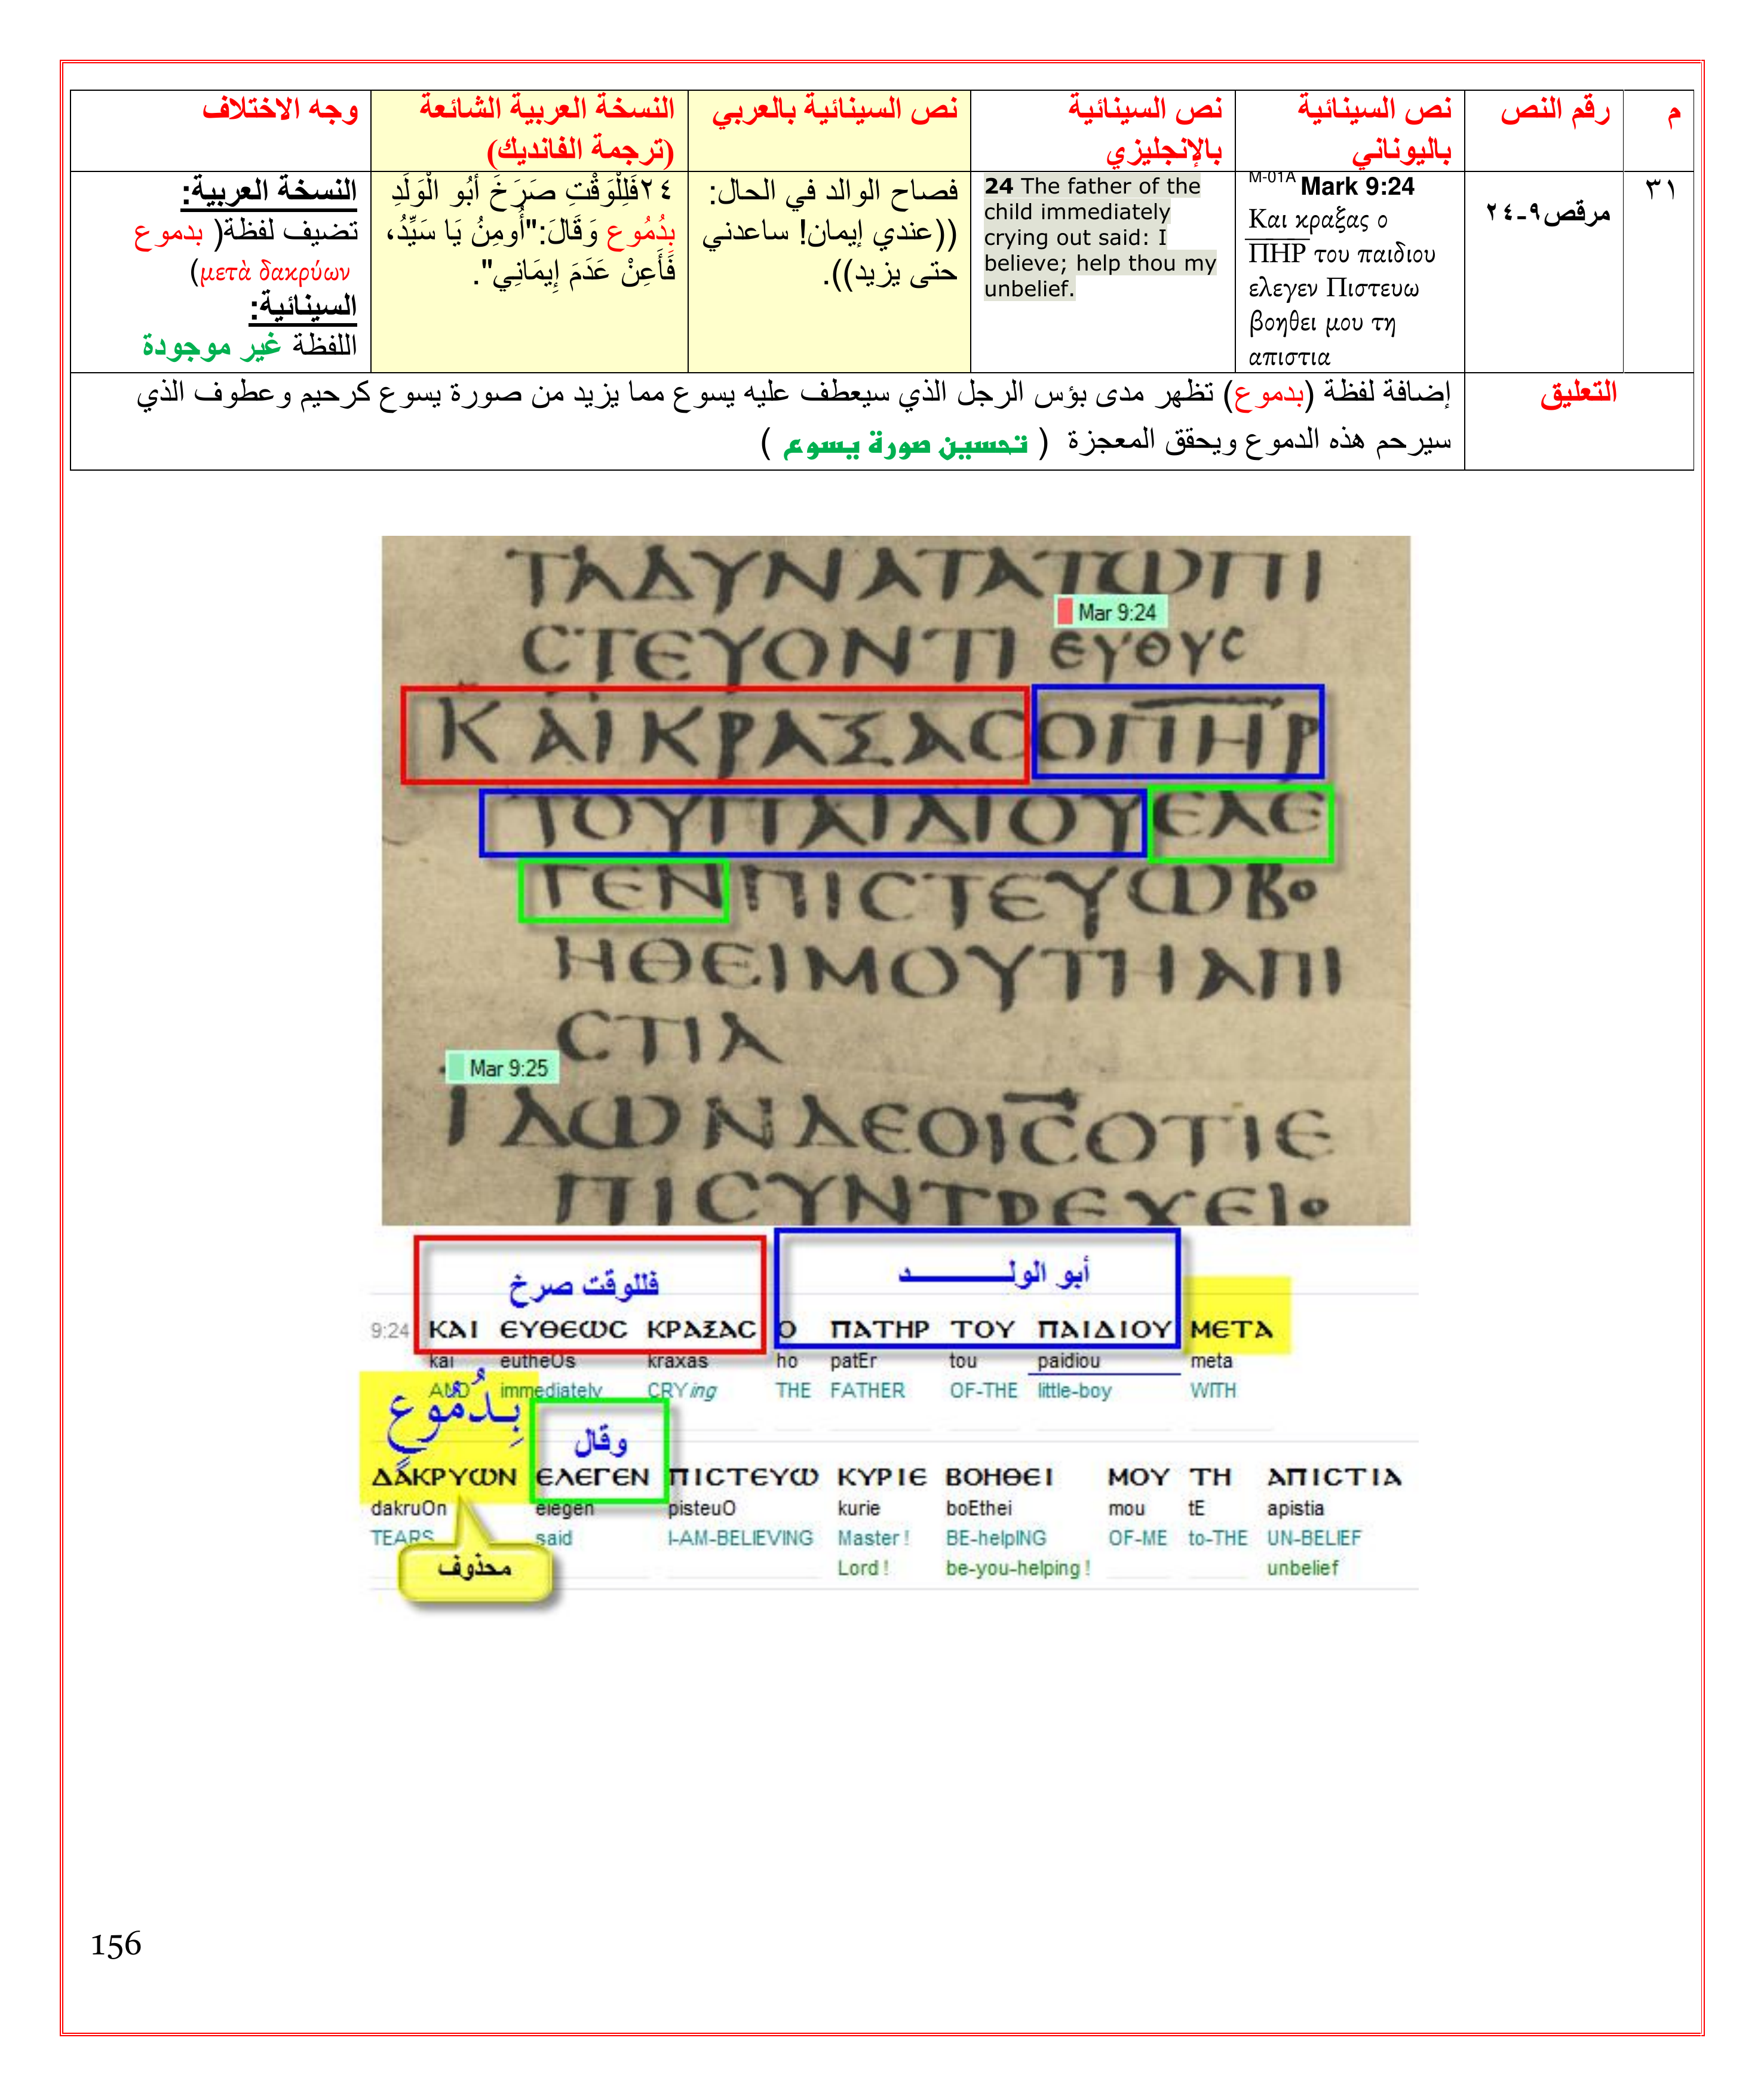 م
رقم النص
نص السينائية باليوناني
نص السينائية بالإنجليزي
نص السينائية بالعربي
النسخة العربية الشائعة (ترجمة الفانديك)
وجه الاختلاف
٣١
مرقص٩-٢٤
M-01A Mark 9:24
Και κραξας ο
ΠΗΡ του παιδιου
ελεγεν Πιστευω
βοηθει μου τη
απιστια
24 The father of the
child immediately
crying out said: I
believe; help thou my
unbelief.
فصاح الوالد في الحال:
((عندي إيمان! ساعدني
حتى يزيد)).
٢٤فَلِلْوَقْتِ صَرَخَ أَبُو الْوَلَدِ
بِدُمُوعٍ وَقَالَ:"أُومِنُ يَا سَيِّدُ،
فَأَعِنْ عَدَمَ إِيمَانِي".
النسخة العربية:
تضيف لفظة( بدموع
μετὰ δακρύων)
السينائية:
اللفظة غير موجودة
التعليق
إضافة لفظة (بدموع) تظهر مدى بؤس الرجل الذي سيعطف عليه يسوع مما يزيد من صورة يسوع كرحيم وعطوف الذي
سيرحم هذه الدموع ويحقق المعجزة ( تحسين صورة يسوع )
ΤΑΔΥΝΑΤΑΤΩΠΙ
Mar 9:24
ϹΤΕΥΟΝΤΙ ΕΥΘΥϹ
ΚΑΙΚΡΑΞΑϹΟΠΗΡ
ΤΟΥΠΑΙΔΙΟΥΕΛΕ
ΓΕΝΠΙϹΤΕΥΩΒΟ
ΗΘΕΙΜΟΥΤΗΑΠΙ
ϹΤΙΑ
Mar 9:25
ΙΔΩΝΔΕΟΙϹΟΤΙΕ
ΠΙϹΥΝΤΡΕΧΕΙΟ
فللوقت صرخ أبو الولـــــد
9:24 ΚΑΙ ΕΥΘΕΩϹ ΚΡΑΞΑϹ Ο ΠΑΤΗΡ ΤΟΥ ΠΑΙΔΙΟΥ ΜΕΤΑ
kai eutheOs kraxas ho patEr tou paidiou meta
AND immediately CRYing THE FATHER OF-THE little-boy WITH
بِدُمُوعٍ وقال
ΔΑΚΡΥΩΝ ΕΛΕΓΕΝ ΠΙϹΤΕΥΩ ΚΥΡΙΕ ΒΟΗΘΕΙ ΜΟΥ ΤΗ ΑΠΙϹΤΙΑ
dakruOn elegen pisteuO kurie boEthei mou tE apistia
TEARS said I-AM-BELIEVING Master ! BE-helpING OF-ME to-THE UN-BELIEF
محذوف
Lord ! be-you-helping ! unbelief
156